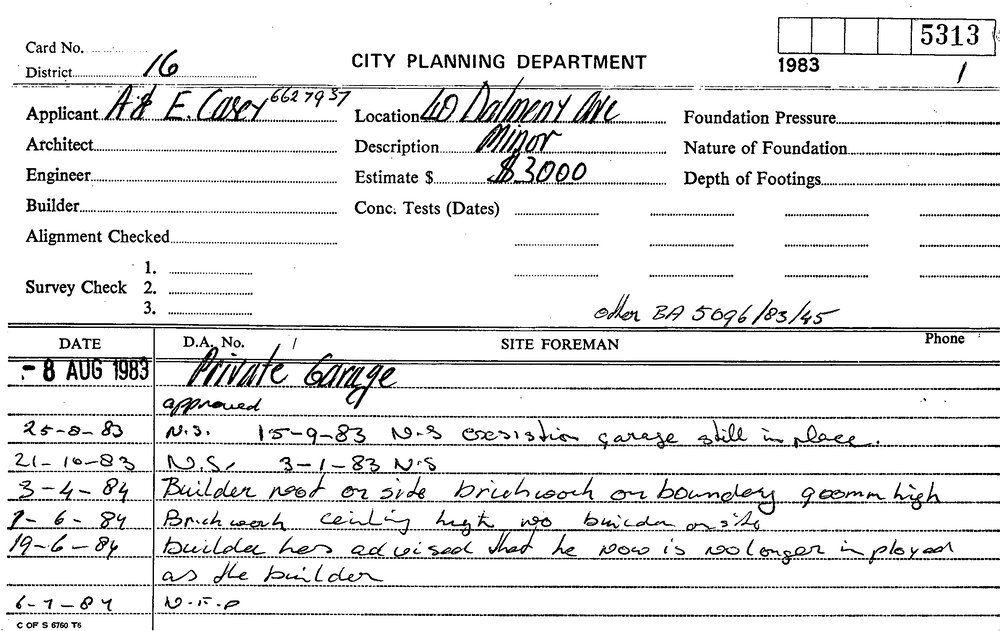 5313
1983
1
Card No.
District 16
CITY PLANNING DEPARTMENT
Applicant A & E. Casey 6627937
Location 40 Dalmeny Ave
Foundation Pressure
Architect
Description Minor
Nature of Foundation
Engineer
Estimate $ $3000
Depth of Footings
Builder
Conc. Tests (Dates)
Alignment Checked
Survey Check
1.
2.
3.
other BA 5096/83/45
DATE D.A. No. SITE FOREMAN Phone
-8 AUG 1983 Private Garage
approved
25-8-83 N.S. 15-9-83 N-S exsistion garage still in place.
21-10-83 N.S. 3-1-83 N.S
3-4-84 Builder noot on site brickwork on boundery 900mm high
7-6-84 Brickwork ceiling high no builder on site
19-6-84 builder has advised that he now is no longer inployed
as the builder
6-7-84 N.F.P
C OF S 6760 T6